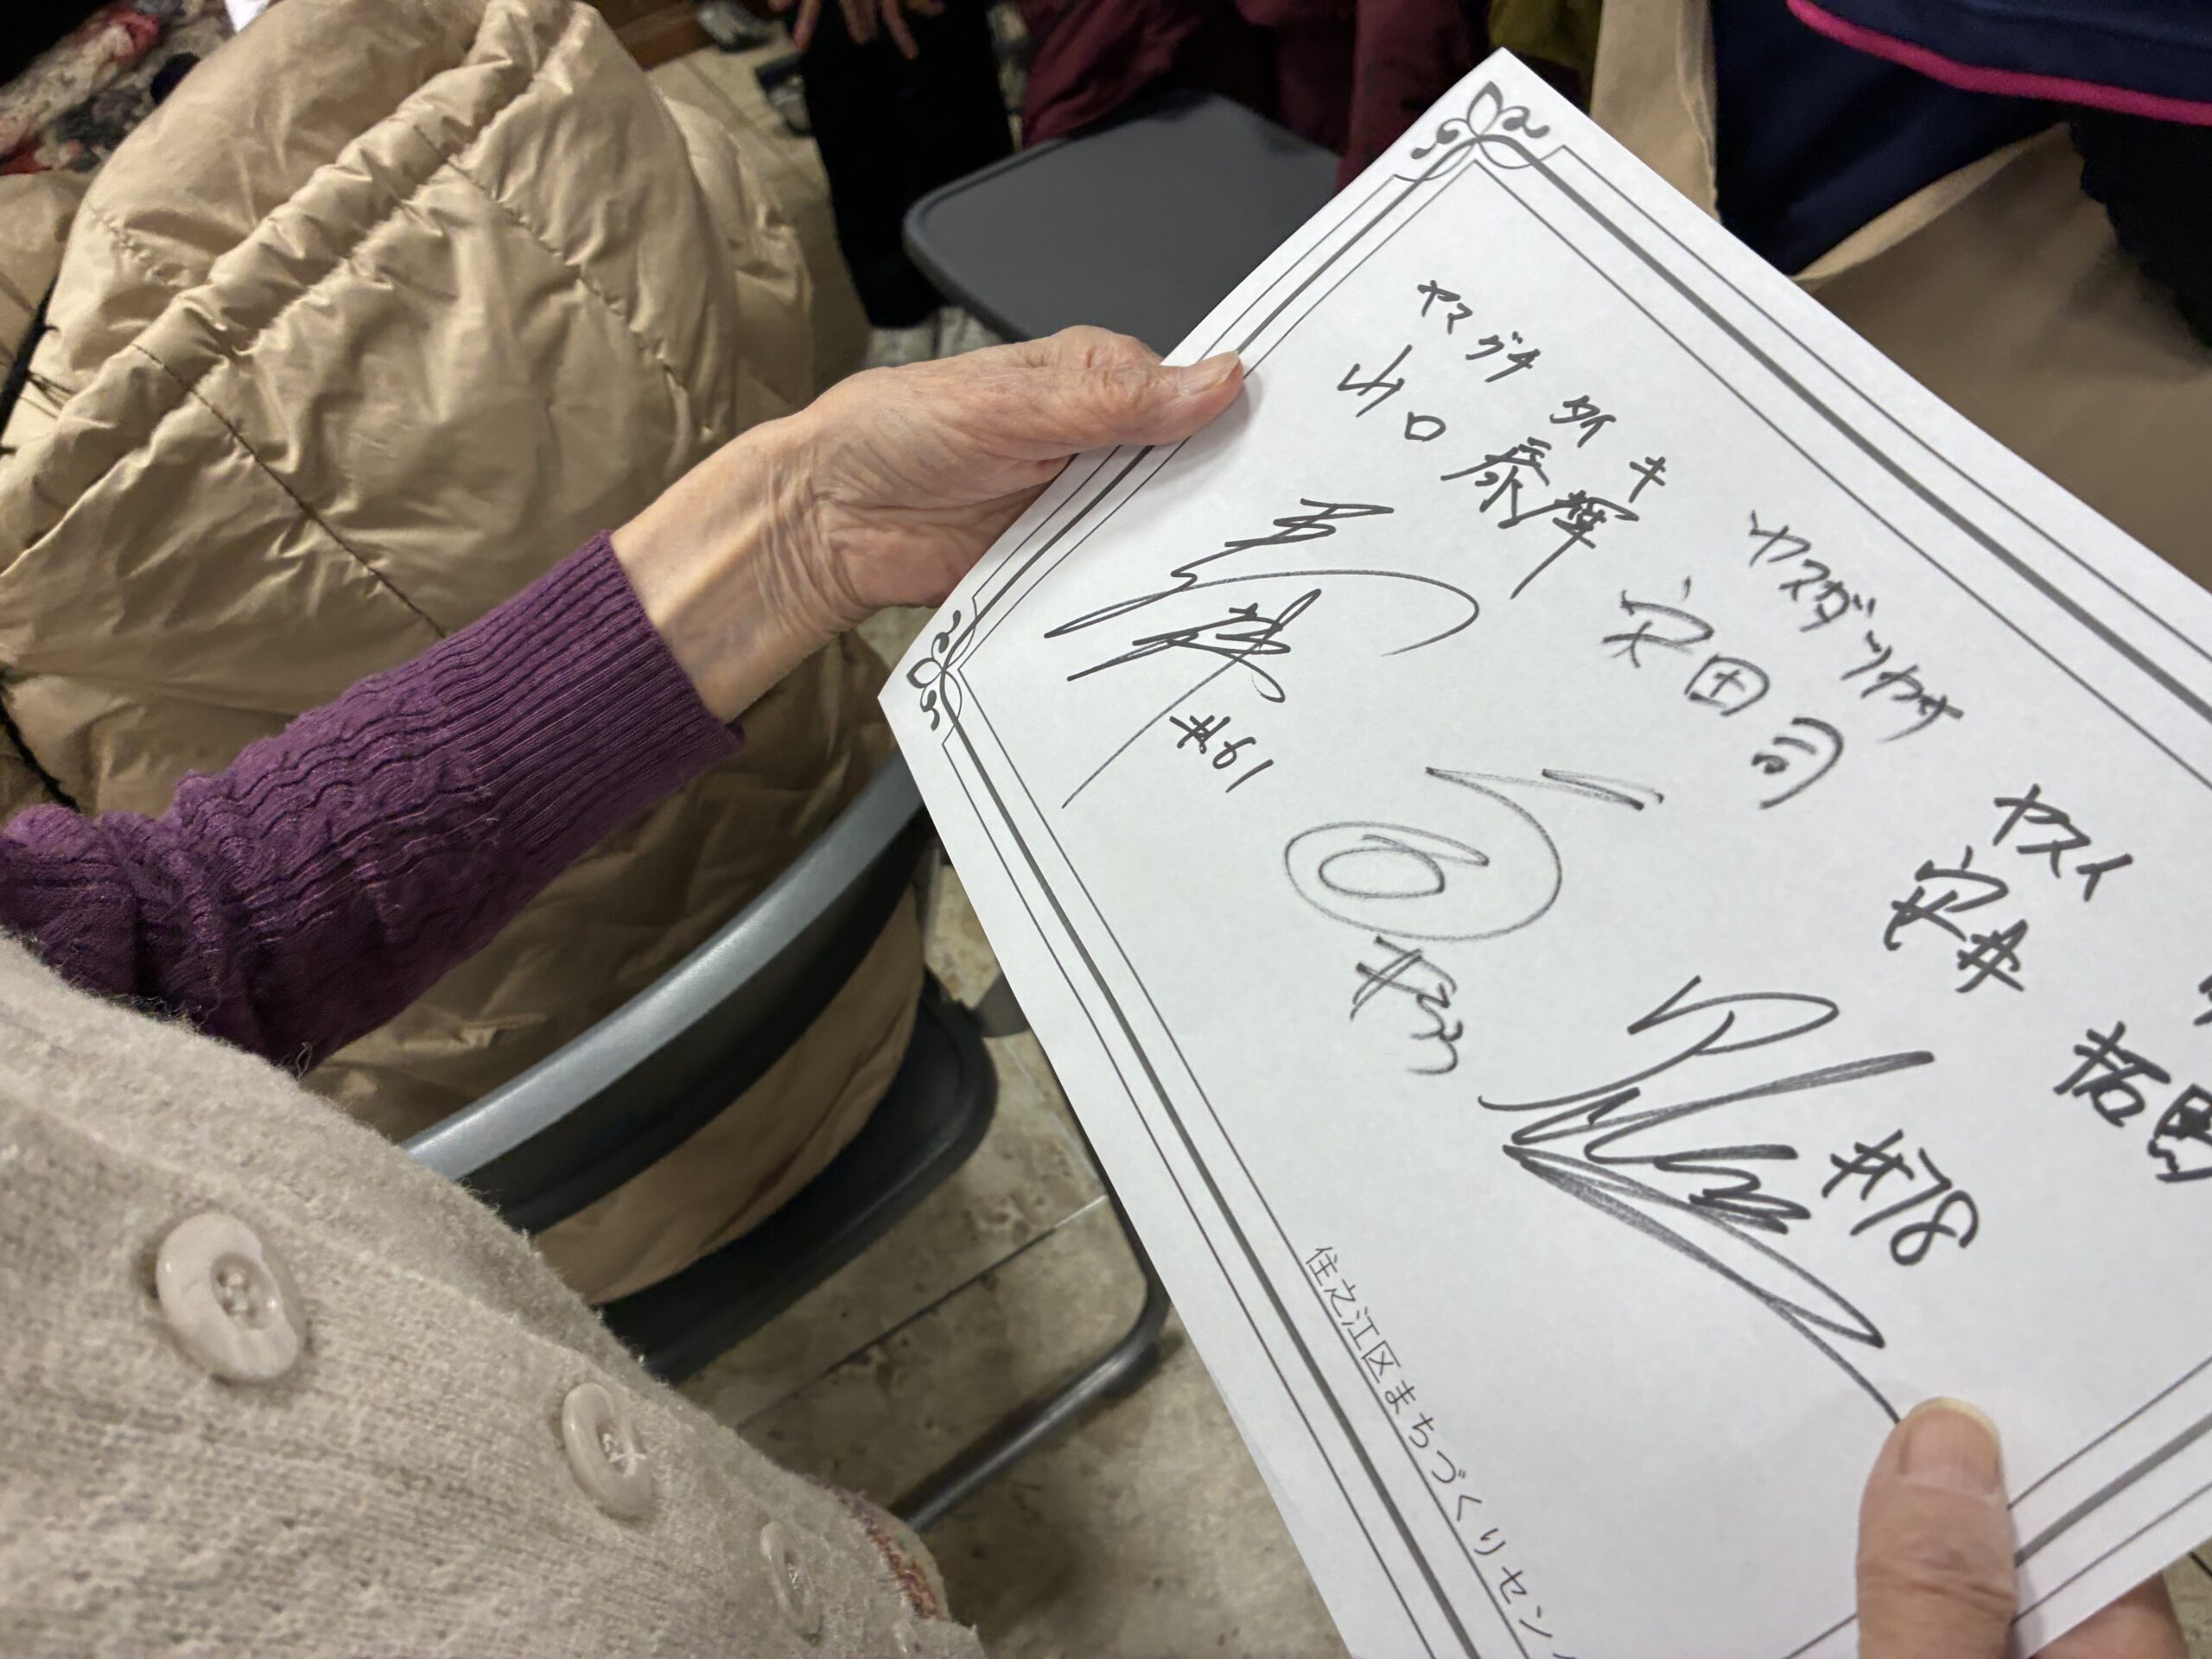 ヤマグチ タイキ
山口 泰輝
#61
ヤスダツカサ
安田 司
ヤスイ
安井 拓馬
#78
住之江区まちづくりセン